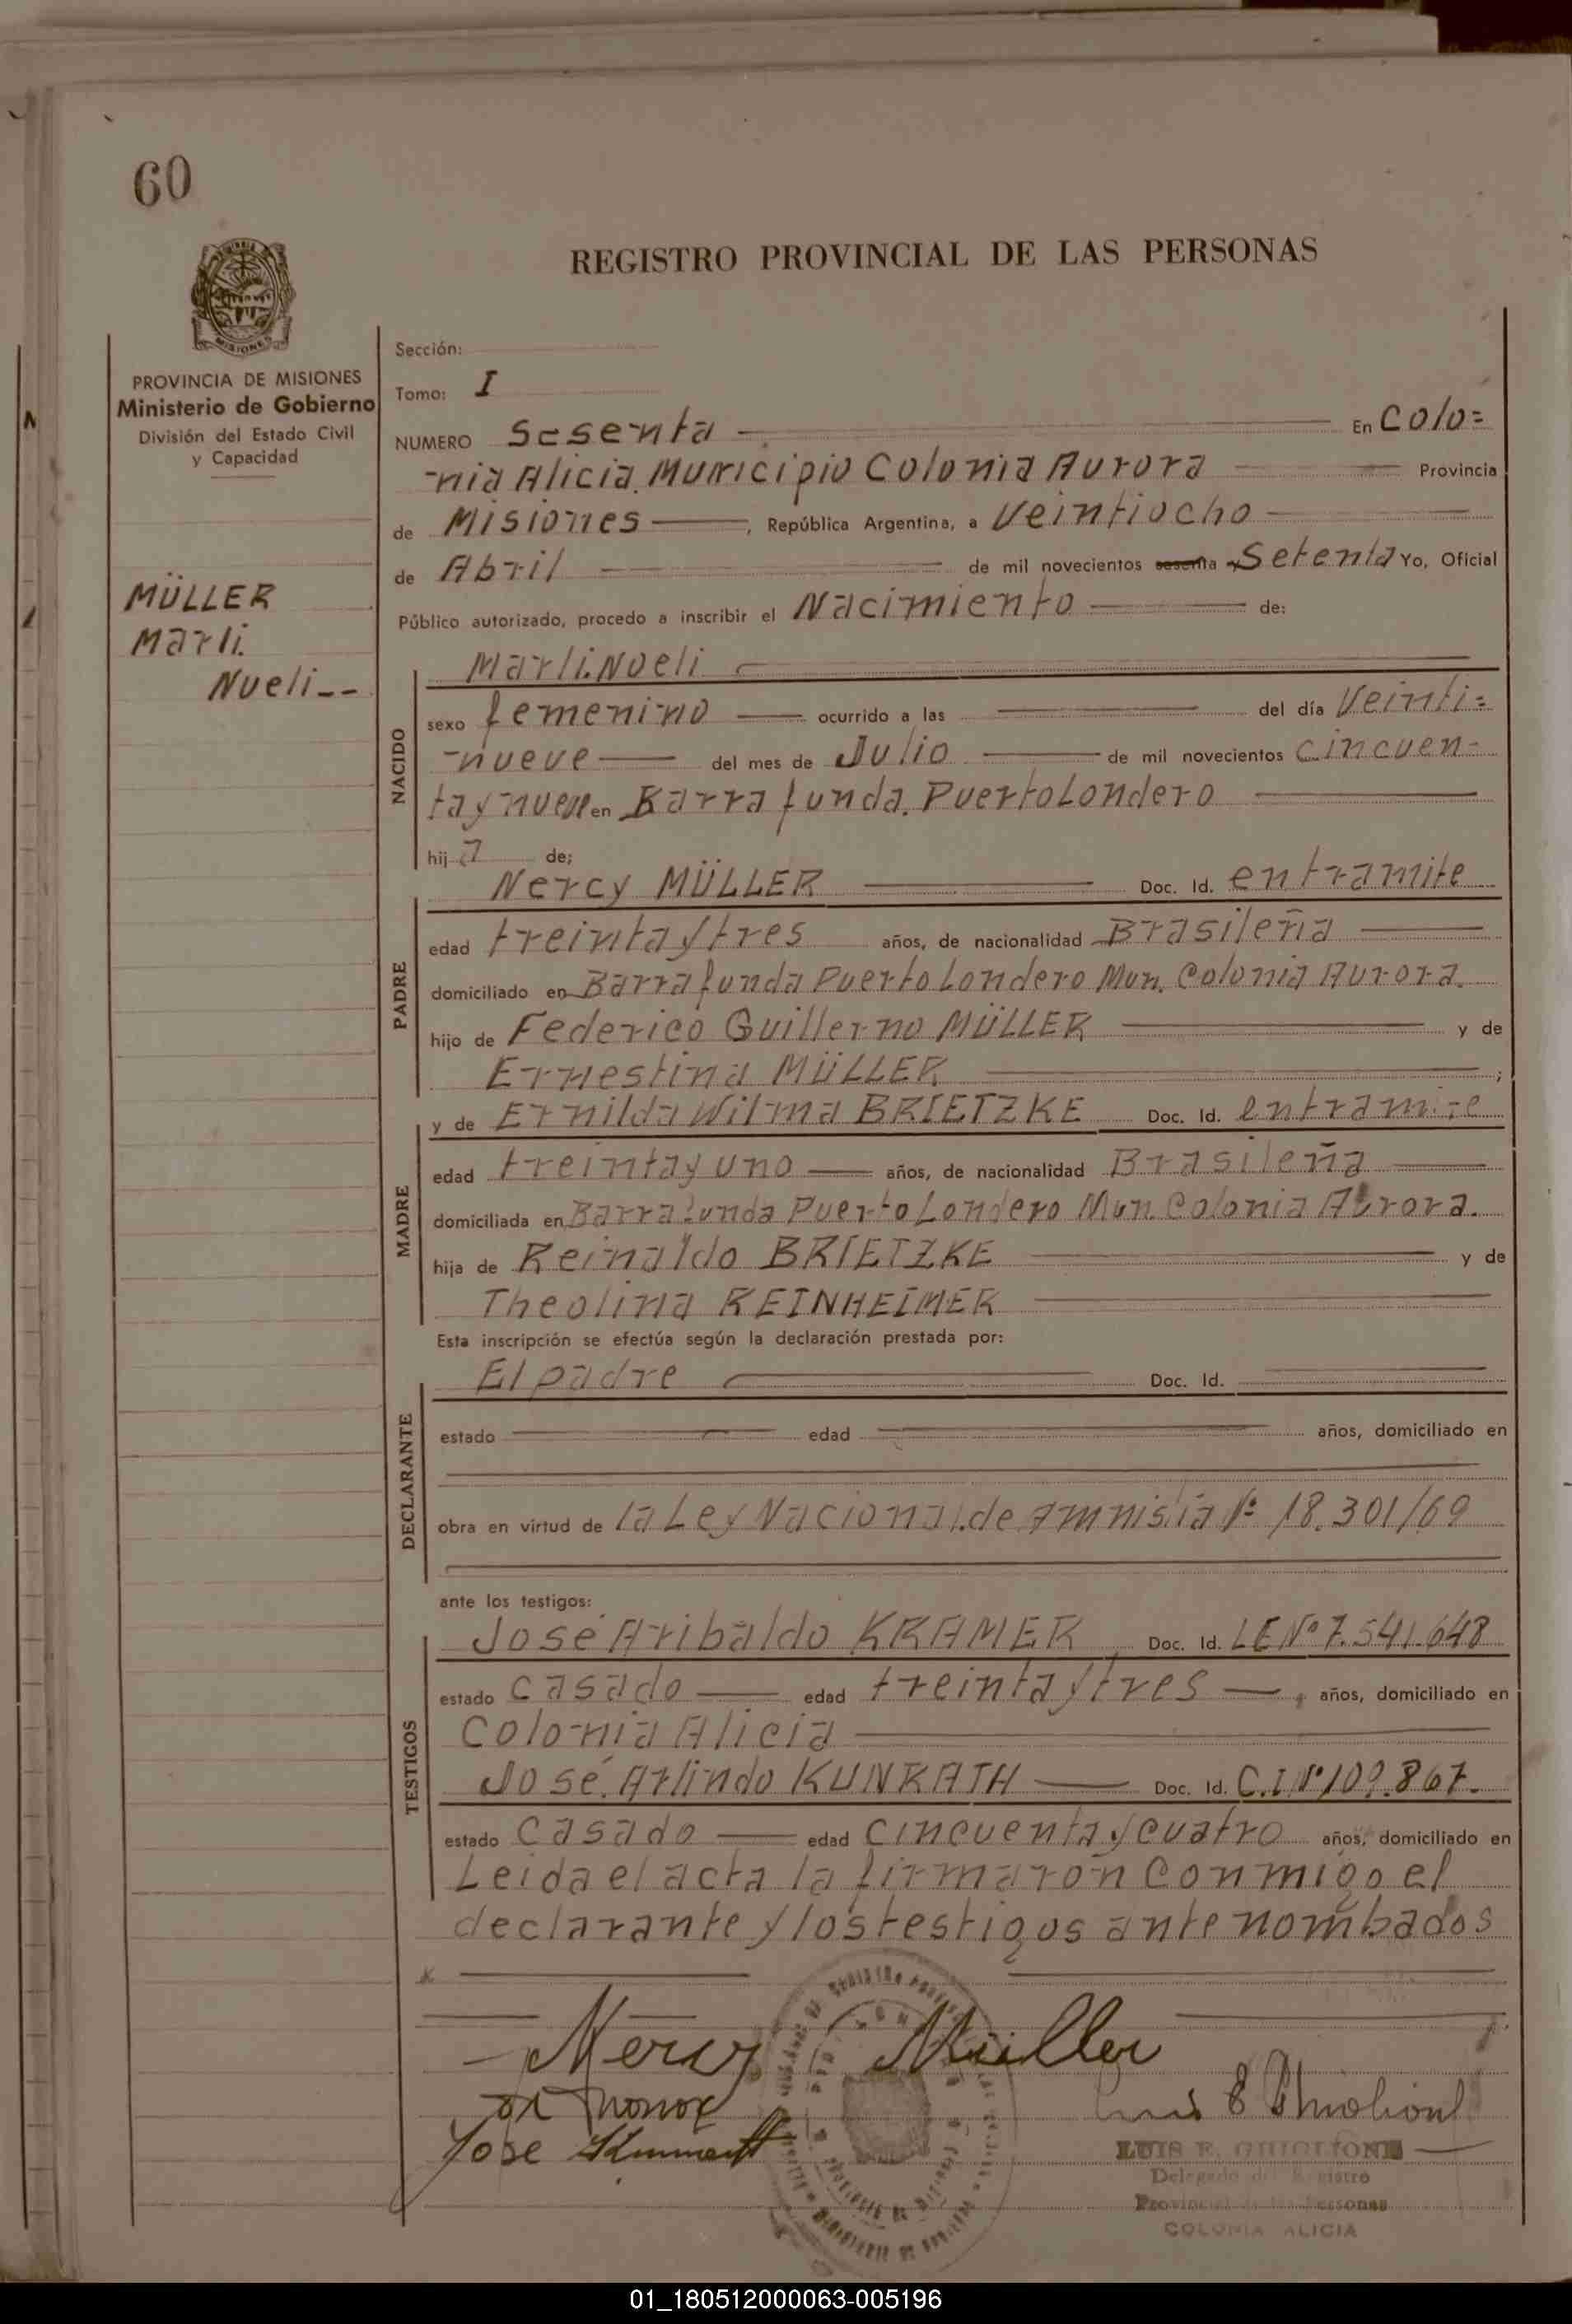 60
REGISTRO PROVINCIAL DE LAS PERSONAS
MISIONES
PROVINCIA DE MISIONES
Ministerio de Gobierno
División del Estado Civil
y Capacidad
MÜLLER
Marli.
Nueli--
Sección:
Tomo: I
NUMERO Sesenta En Colo=
-nia Alicia. Municipio Colonia Aurora Provincia
de Misiones, República Argentina, a veintiocho
de Abril de mil novecientos sesenta y Setenta Yo, Oficial
Público autorizado, procedo a inscribir el Nacimiento de:
Marli.Noeli
NACIDO
sexo femenino ocurrido a las del día Veinti=
-nueve del mes de Julio de mil novecientos cincuen-
ta y nueve en Barra funda. Puerto Londero
hija de;
Nercy MÜLLER Doc. Id. entramite
PADRE
edad treinta y tres años, de nacionalidad Brasileña
domiciliado en Barra funda Puerto Londero Mun. Colonia Aurora.
hijo de Federico Guillermo MÜLLER y de
Ernestina MÜLLER ;
y de Ernilda Wilma BRIETZKE Doc. Id. entramite
MADRE
edad treinta y uno años, de nacionalidad Brasileña
domiciliada en Barra funda Puerto Londero Mun. Colonia Aurora.
hija de Reinaldo BRIETZKE y de
Theolina REINHEIMER
Esta inscripción se efectúa según la declaración prestada por:
El padre Doc. Id.
DECLARANTE
estado edad años, domiciliado en
obra en virtud de la Ley Nacional.de Amnistia Nº 18.301/69
ante los testigos:
José Aribaldo KRAMER Doc. Id. LE Nº 7.541.648
TESTIGOS
estado casado edad treinta y tres, años, domiciliado en
Colonia Alicia
José. Arlindo KUNRATH Doc. Id. C.I Nº 109.867.
estado casado edad cincuenta y cuatro años, domiciliado en
Leida el acta la firmaron conmigo el
declarante y los testigos ante nombados
Nercy Müller
Jose
LUIS E. GHIGLIONE
Delegado del Registro
Provincial de las Personas
COLONIA ALICIA
01_180512000063-005196